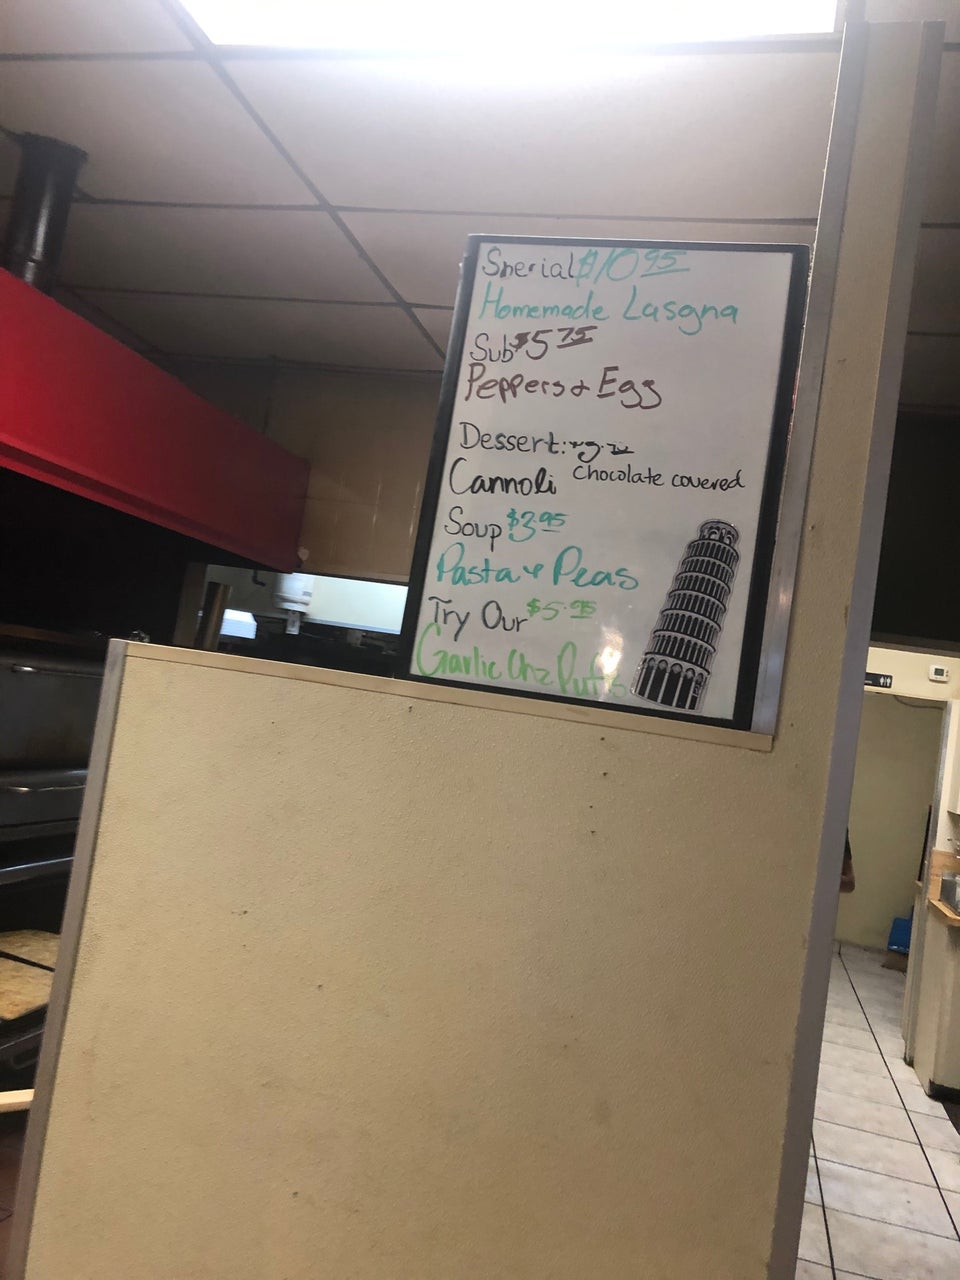 Special $10.95
Homemade Lasagna
Sub $5.75
Peppers & Egg
Dessert:
Cannoli Chocolate covered
Soup $3.95
Pasta & Peas
Try Our $5.95
Garlic Chz Puffs